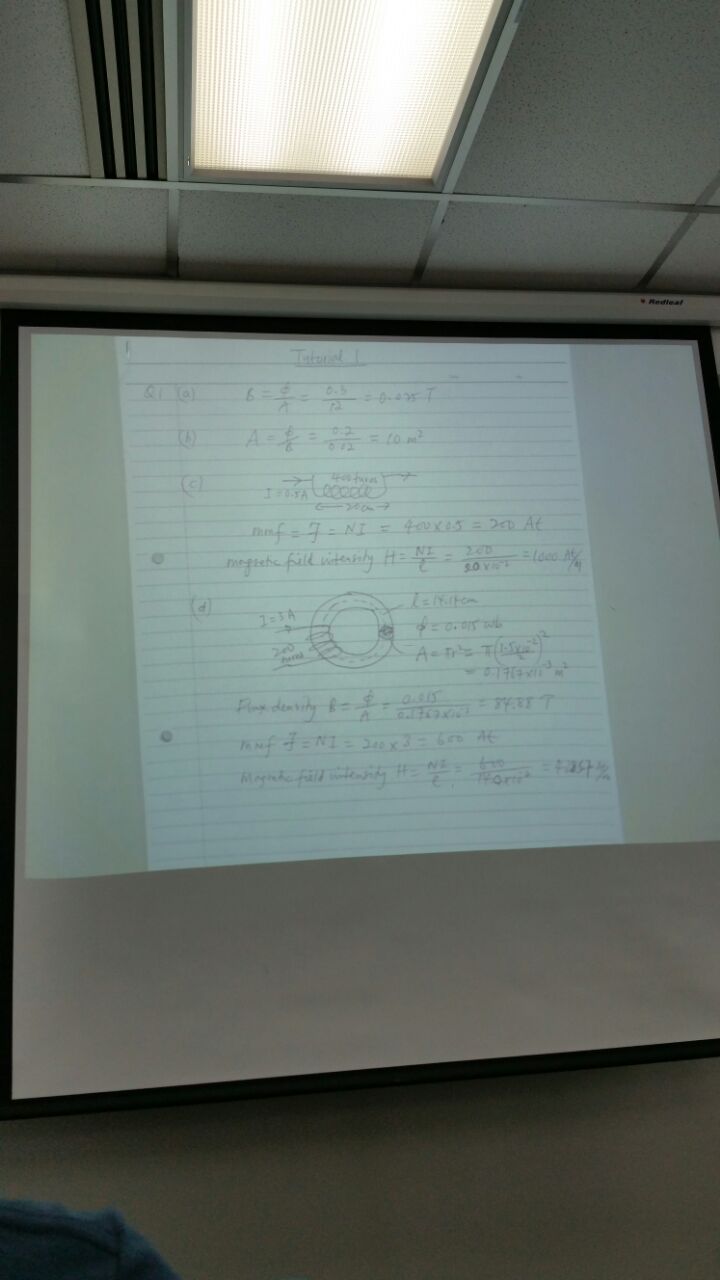 Redleaf
Tutorial 1
Q1 (a) B = ϕ/A = 0.3/12 = 0.025 T
(b) A = ϕ/B = 0.2/0.02 = 10 m²
(c) 400 turns
I = 0.5A
20cm
mmf = F = NI = 400 × 0.5 = 200 At
magnetic field intensity H = NI/ℓ = 200/20×10⁻² = 1000 At/m
(d) I = 3A
200 turns
ℓ = 14.14cm
ϕ = 0.015 wb
A = πr² = π(1.5×10⁻²/2)²
= 0.1767×10⁻³ m²
Flux density B = ϕ/A = 0.015/0.1767×10⁻³ = 84.88 T
mmf F = NI = 200 × 3 = 600 At
Magnetic field intensity H = NI/ℓ = 600